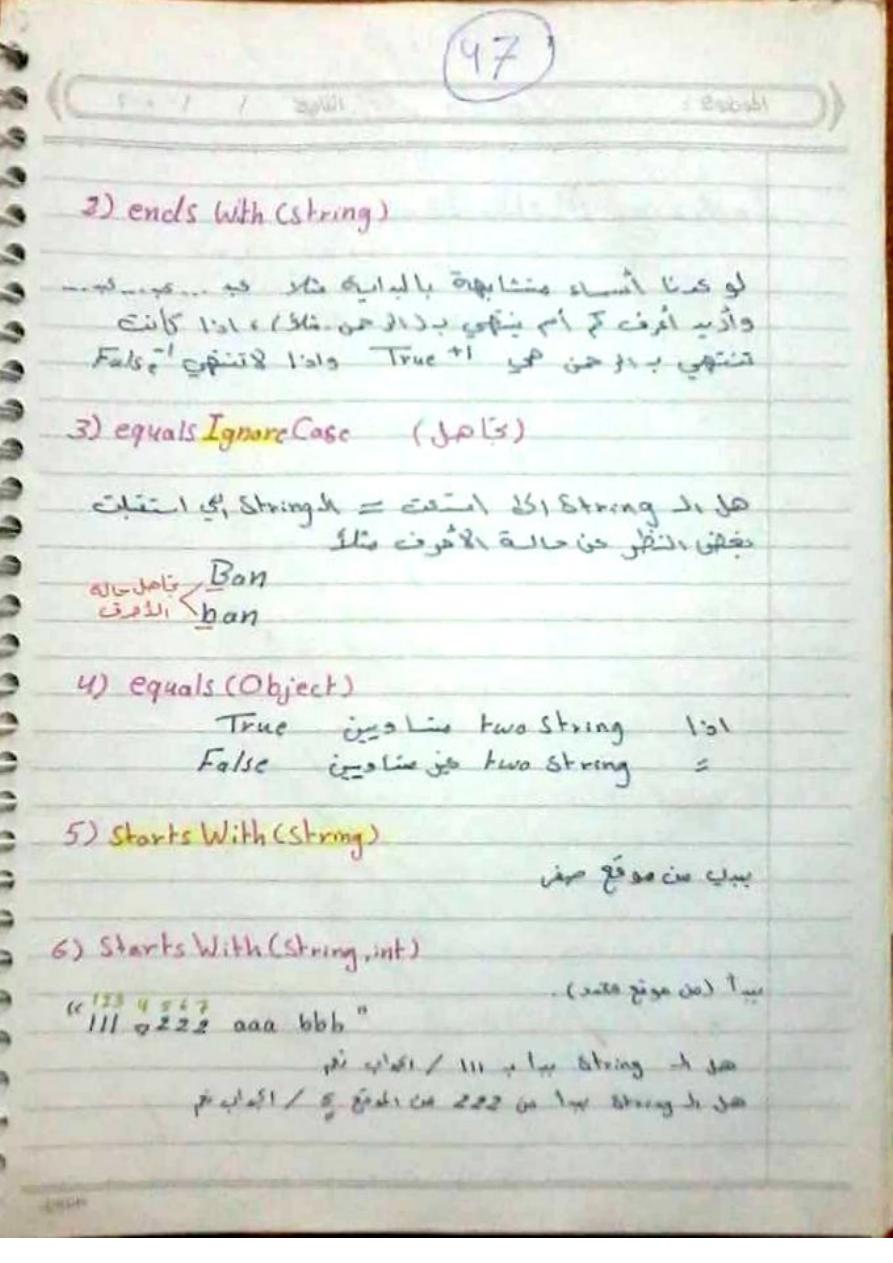 47
الموضوع :
التاريخ / / ٢٠
2) ends With (String)
لو عدنا أسماء متشابهة بالبداية مثلا عبد ... عبد ... عبد ...
وأريد أعرف كم اسم ينتهي بـ (الرحمن مثلاً) ، اذا كانت
تنتهي بـ الرحمن هي True +1 واذا لا تنتهي False
3) equals Ignore Case (تجاهل)
هل الـ String = الـ String الي استقبلت
بغض النظر عن حالة الأحرف مثلاً
Ban
تجاهل حالة الأحرف
ban
4) equals (Object)
اذا two String متساويين True
= two String غير متساويين False
5) Starts With (String)
يبدأ من موقع صفر
6) Starts With (String, int)
يبدأ (من موقع محدد).
123 4 5 6 7
" 111 222 aaa bbb "
هل الـ String يبدأ بـ 111 / الجواب نعم
هل الـ String يبدأ من 222 من الموقع 5 / الجواب نعم